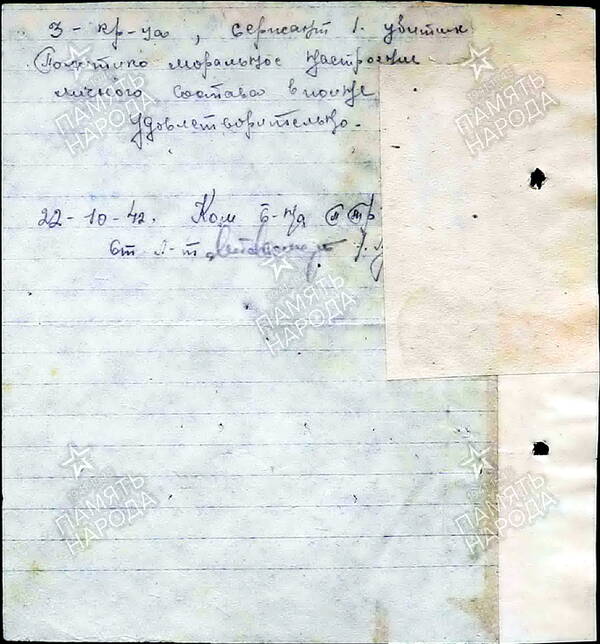 3 - кр-ца, сержант 1. убитых
Политико моральное настроение
личного состава в полне
удовлетворительно.
22-10-42. Ком б-на
ст л-т
ПАМЯТЬ
НАРОДА
ПАМЯТЬ
НАРОДА
ПАМЯТЬ
НАРОДА
ПАМЯТЬ
НАРОДА
ПАМЯТЬ
НАРОДА